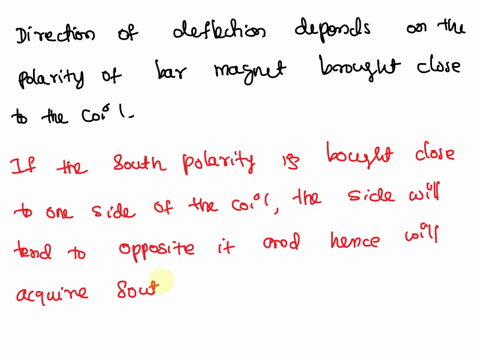 Direction of deflection depends on the
polarity of bar magnet brought close
to the coil.
If the south polarity is bought close
to one side of the coil, the side will
tend to opposite it and hence will
acquire sout